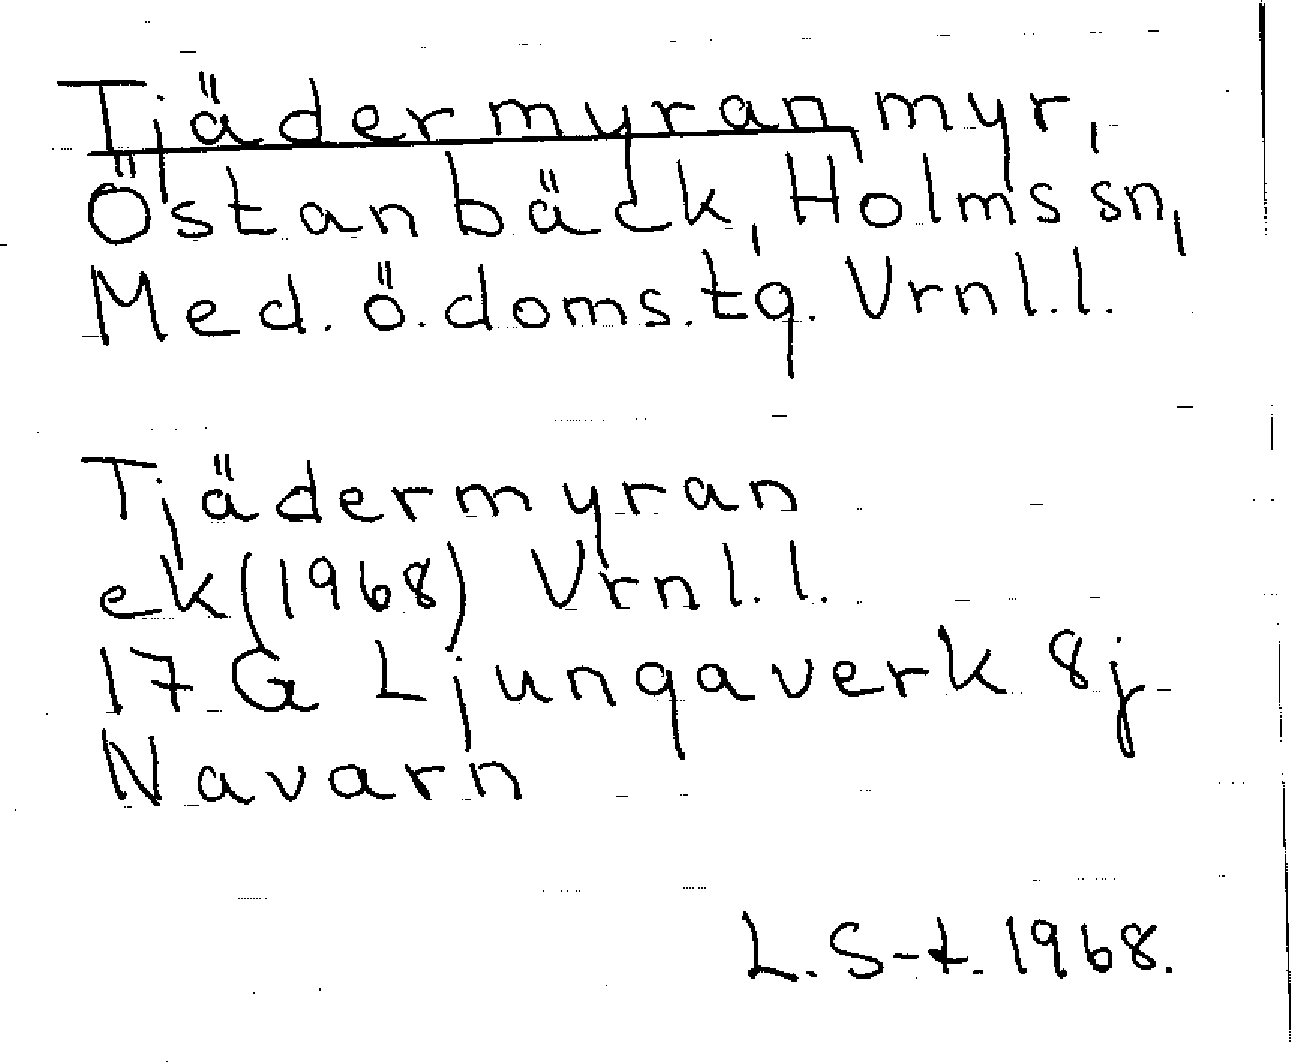 Tjädermyran, myr,
Östanbäck, Holms sn,
Med. ö. doms. tg. Vrnl. l.
Tjädermyran
ek (1968) Vrnl. l.
17 G Ljungaverk 8j
Navarn
L. S-t. 1968.